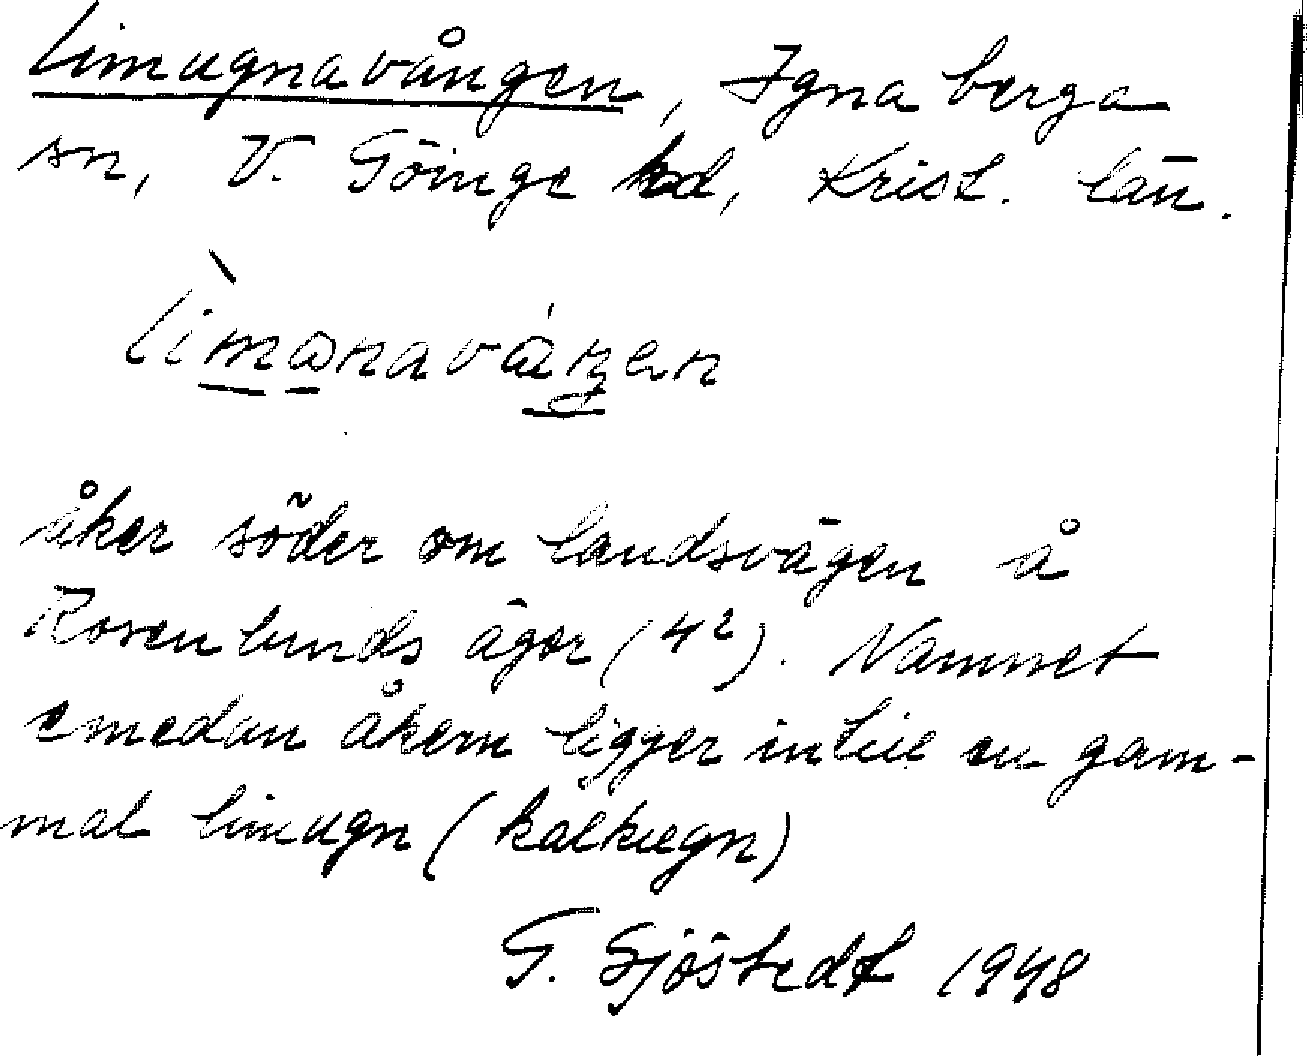 Limugnavången, Ignaberga
sn, V. Göinge hd, Krist. län.
åker söder om landsvägen å
Rosenlunds ägor (4²). Namnet
emedan åkern ligger intill en gam-
mal limugn (kalkugn)
G. Sjöstedt 1948